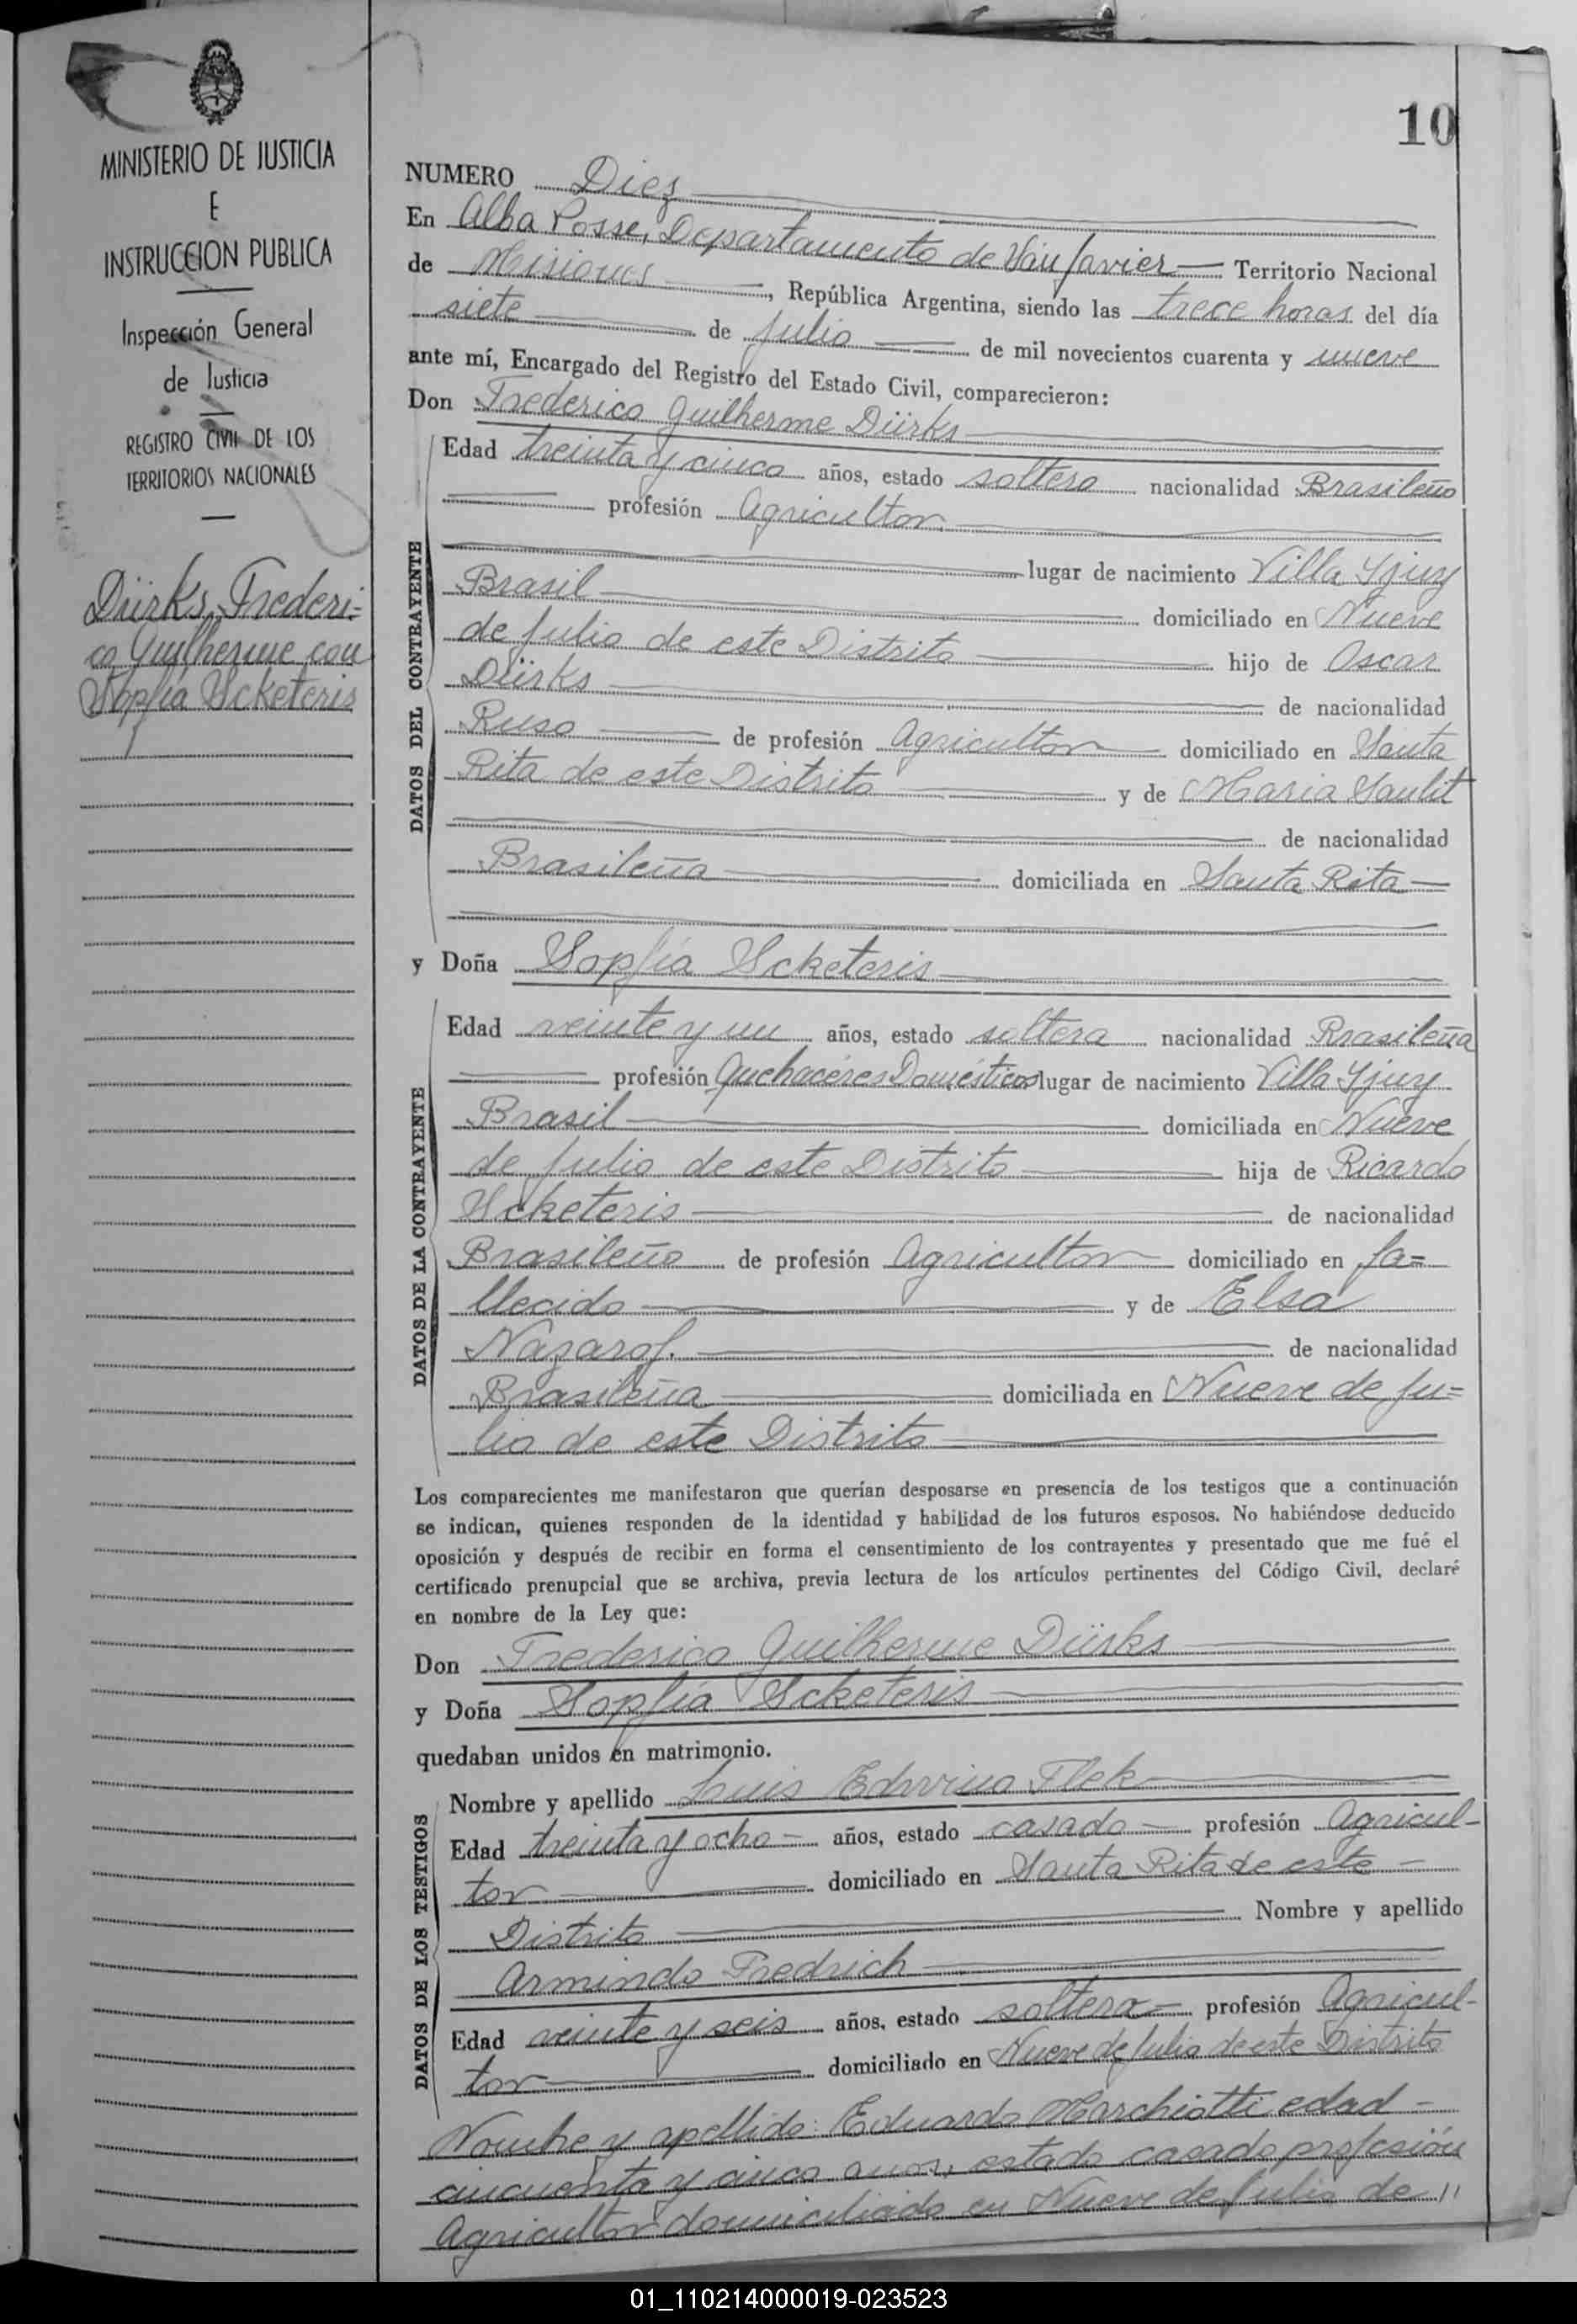 MINISTERIO DE JUSTICIA
E
INSTRUCCION PUBLICA
Inspección General
de Justicia
REGISTRO CIVIL DE LOS
TERRITORIOS NACIONALES
Dürks, Frederi=
co Guilherme con
Sophia Scketeris
10
NUMERO Diez
En Alba Posse, Departamento de San Javier Territorio Nacional
de Misiones, República Argentina, siendo las trece horas del día
siete de Julio de mil novecientos cuarenta y nueve
ante mí, Encargado del Registro del Estado Civil, comparecieron:
Don Frederico Guilherme Dürks
DATOS DEL CONTRAYENTE
Edad treinta y cinco años, estado soltero nacionalidad Brasileño
profesión Agricultor
lugar de nacimiento Villa Yjuy
Brasil domiciliado en Nueve
de Julio de este Distrito hijo de Oscar
Dürks de nacionalidad
Ruso de profesión Agricultor domiciliado en Santa
Rita de este Distrito y de Maria Saulit
de nacionalidad
Brasileña domiciliada en Santa Rita
y Doña Sophia Scketeris
DATOS DE LA CONTRAYENTE
Edad veinte y un años, estado soltera nacionalidad Brasileña
profesión Quehaceres Domésticos lugar de nacimiento Villa Yjuy
Brasil domiciliada en Nueve
de Julio de este Distrito hija de Ricardo
Scketeris de nacionalidad
Brasileño de profesión Agricultor domiciliado en fa=
llecido y de Elsa
Nazarof. de nacionalidad
Brasileña domiciliada en Nueve de Ju=
lio de este Distrito
Los comparecientes me manifestaron que querían desposarse en presencia de los testigos que a continuación
se indican, quienes responden de la identidad y habilidad de los futuros esposos. No habiéndose deducido
oposición y después de recibir en forma el consentimiento de los contrayentes y presentado que me fué el
certificado prenupcial que se archiva, previa lectura de los artículos pertinentes del Código Civil, declaré
en nombre de la Ley que:
Don Frederico Guilherme Dürks
y Doña Sophia Scketeris
quedaban unidos en matrimonio.
DATOS DE LOS TESTIGOS
Nombre y apellido Luis Edvvino Flek
Edad treinta y ocho años, estado casado profesión Agricul-
tor domiciliado en Santa Rita de este
Distrito Nombre y apellido
Armindo Fredrich
Edad veinte y seis años, estado soltero profesión Agricul-
tor domiciliado en Nueve de Julio de este Distrito
Nombre y apellido: Eduardo Marchiotti edad
cincuenta y cinco años, estado casado profesión
Agricultor domiciliado en Nueve de Julio de "
01_110214000019-023523